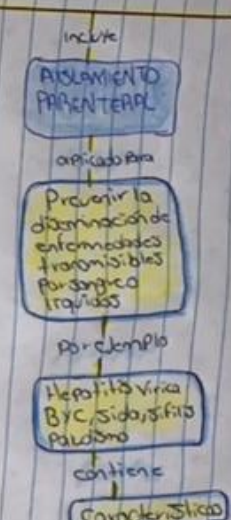 incluye
AISLAMIENTO
PARENTERAL
aplicado para
Prevenir la
discminación de
enfermedades
transmisibles
por sangre o
líquidos
por ejemplo
Hepatitis vírica
B y C, sida, sífilis
paludismo
contiene
Características